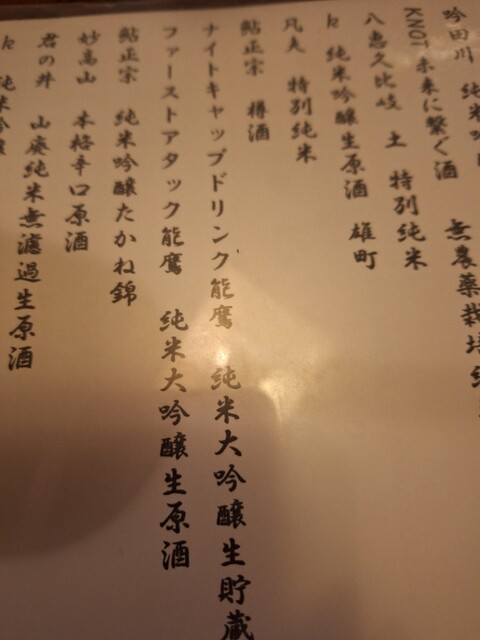 吟田川 純米吟 無農薬栽培
KNOT 未来に繋ぐ酒
八恵久比岐 土 特別純米
k 純米吟醸生原酒 雄町
凡夫 特別純米
鮎正宗 樽酒
ナイトキャップドリンク能鷹 純米大吟醸生貯蔵
ファーストアタック能鷹 純米大吟醸生原酒
鮎正宗 純米吟醸たかね錦
妙高山 本格辛口原酒
君の井 山廃純米無濾過生原酒
k 純米吟醸